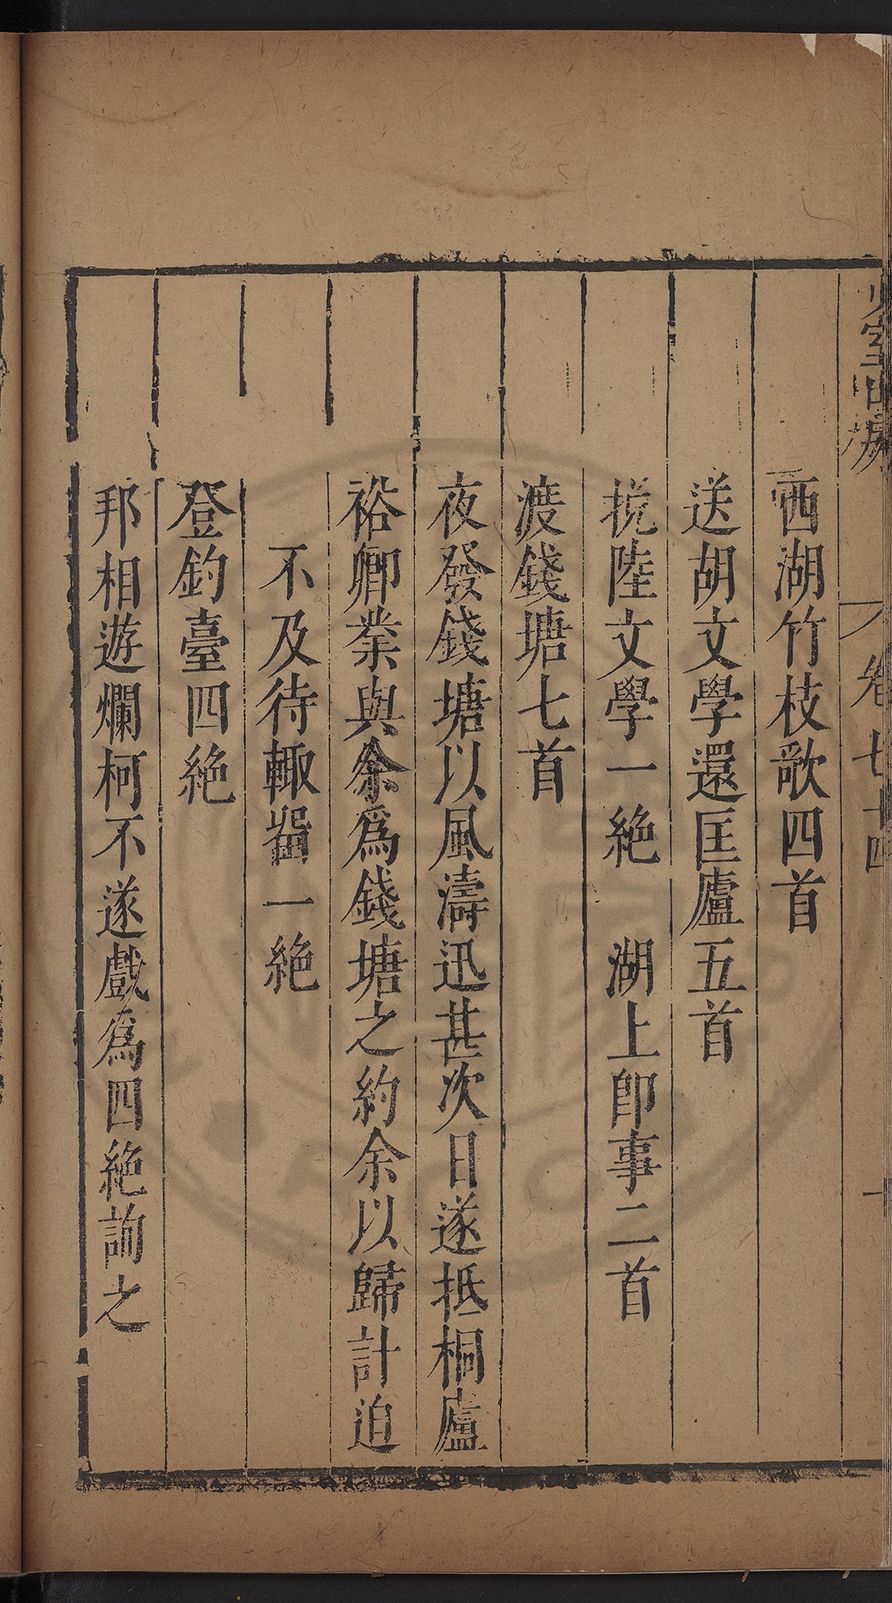 西湖竹枝歌四首
送胡文學還匡廬五首
挽陸文學一絶　湖上卽事二首
渡錢塘七首
夜發錢塘以風濤迅甚次日遂抵桐廬
裕卿業與余爲錢塘之約余以歸計迫
不及待輙畱一絶
登釣臺四絶
邦相遊爛柯不遂戲爲四絶詢之
卷七十四